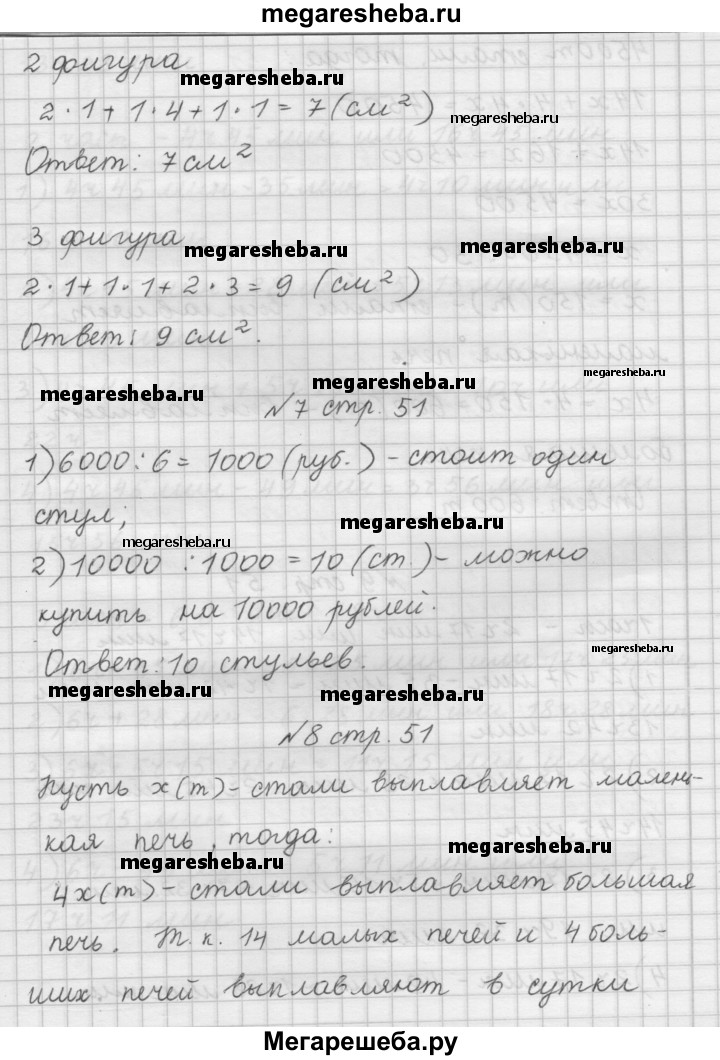 megaresheba.ru
2 фигура
megaresheba.ru
2·1+1·4+1·1=7(см²)
megaresheba.ru
Ответ: 7см²
3 фигура
megaresheba.ru
megaresheba.ru
2·1+1·1+2·3=9 (см²)
Ответ: 9 см².
megaresheba.ru
megaresheba.ru
megaresheba.ru
№7 стр. 51
1)6000:6=1000(руб.)-стоит один
стул;
megaresheba.ru
megaresheba.ru
2)10000:1000=10(ст.)-можно
купить на 10000 рублей.
megaresheba.ru
Ответ:10 стульев.
megaresheba.ru
megaresheba.ru
№8 стр. 51
Пусть x(т)-стали выплавляет малень-
кая печь, тогда:
megaresheba.ru
megaresheba.ru
4x(т)-стали выплавляет большая
печь. Т.к. 14 малых печей и 4 боль-
ших печей выплавляют в сутки
Мегарешеба.ру